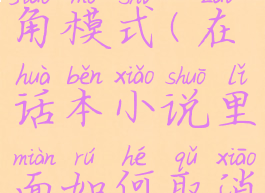 角模式(在
huà běn xiǎo shuō lǐ
话本小说里
miàn rú hé qǔ xiāo
面如何取消